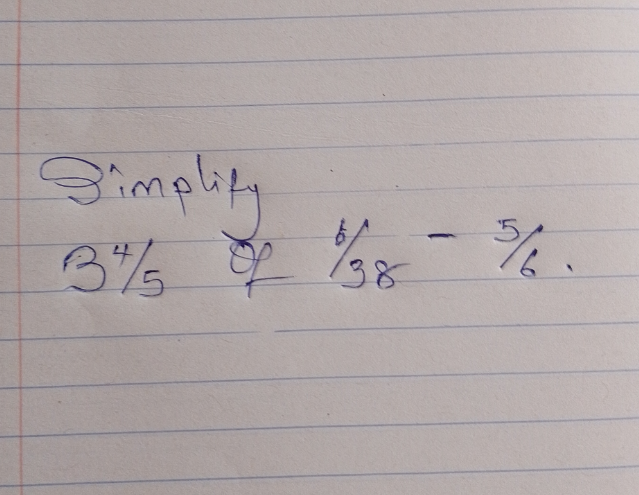 Simplify
3 4/5 Of 6/38 - 5/6.